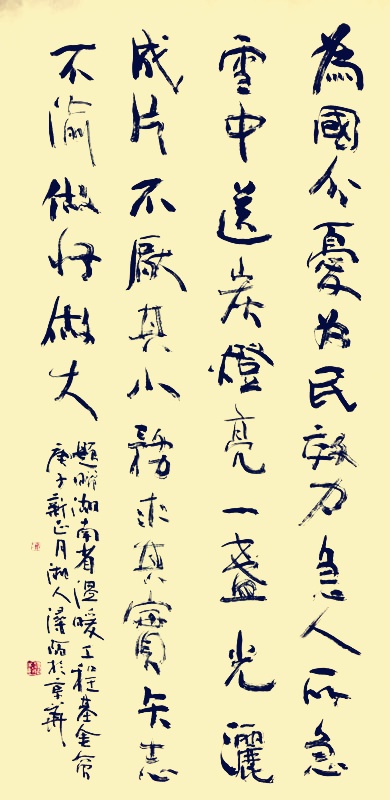 為國分憂為民效力急人所急
雪中送炭燈亮一盞光灑
成片不厭其小務求其實矢志
不渝做好做大
題贈湖南省溫暖工程基金會
庚子新正月湘人澤於京華